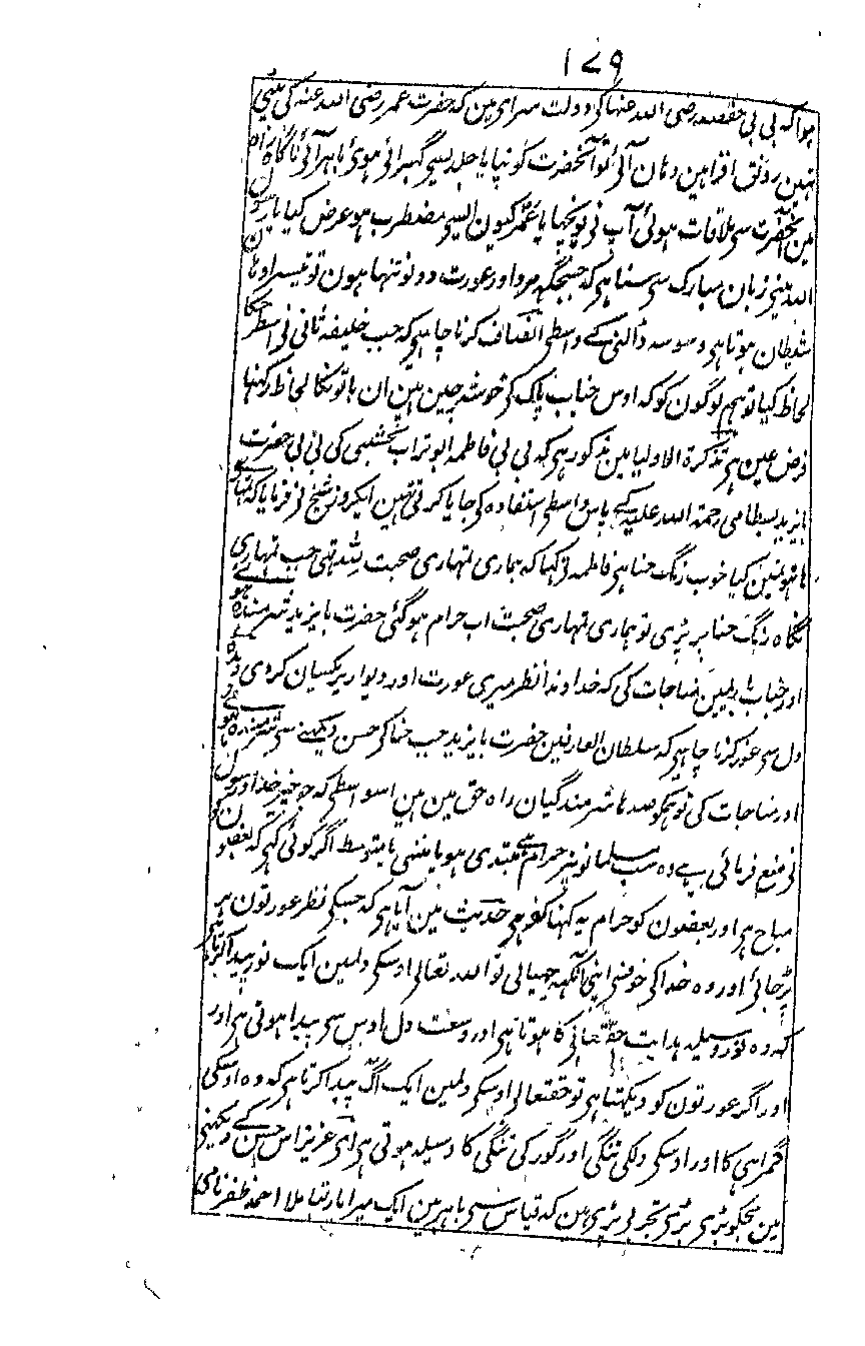 ۱۷۹
ہوا کہ بی بی حفصہ رضی اللہ عنہا کی دولت سرای مین کہ حضرت عمر رضی اللہ عنہ کی بیٹی
تہین رونق افزا ہین وہان آئی تو آنحضرت کو نپایا جلد سی گہبرائی ہوی باہر آئی ناگاہ راہ
مین آنحضرت سی ملاقات ہوئی آپ نی پونچہا یا عمر کیون ایسی مضطرب ہو عرض کیا یا رسول
اللہ مینی زبان مبارک سی سنا ہی کہ جسجگہہ مرد اور عورت دونو تنہا ہون تو تیسرا وہان
شیطان ہوتا ہی وسوسہ ڈالنی کے واسطی انصاف کرنا چاہئی کہ جب خلیفہ ثانی نی اسطرحکا
لحاظ کیا تو ہم لوگون کو کہ اوس جناب پاک کی خوشہ چین ہین ان باتونکا لحاظ رکہنا
فرض عین ہی تذکرۃ الاولیا مین مذکور ہی کہ بی بی فاطمہ ابو تراب نخشبی کی بی بی حضرت
بایزید بسطامی رحمۃ اللہ علیہ کے پاس واسطی استفادہ کی جایا کرتی تہین ایکروز شیخ نی فرمایا کہ تمہاری
ہاتہونمین کیا خوب رنگ حنا ہی فاطمہ نی کہا کہ ہماری تمہاری صحبت للہ تہی جب تمہاری
نگاہ رنگ حنا پر پڑی تو ہماری تمہاری صحبت اب حرام ہوگئی حضرت بایزید شرمندہ ہوئے
اور جناب باری مین مناجات کی کہ خداوندا نظر میری عورت اور دیوار پر یکسان کر دی
دل سی غور کرنا چاہیی کہ سلطان العارفین حضرت بایزید جب حنا کی حسن دیکہنے سی شرمندہ ہوئے
اور مناجات کی تو ہمکو صدہا شرمندگیان راہ حق مین ہین اسواسطی کہ جو چیز خدا و رسول
نی منع فرمائی ہے وہ سب مسلمانونپر حرام ہے مبتدی ہو یا منتہی یا متوسط اگر کوئی کہی کہ بعضون کو
مباح ہی اور بعضون کو حرام یہ کہنا کفر ہی حدیث مین آیا ہی کہ جسکی نظر عورتون پر
پڑ جائی اور وہ خدا کی خوف سی اپنی آنکہہ چہپالی تو اللہ تعالی اوسکی دلمین ایک نور پیدا کرتا ہی
کہ وہ نور وسیلہ ہدایت حقتعالی کا ہوتا ہی اور وسعت دل اوس سی پیدا ہوتی ہی اور
اور اگر عورتون کو دیکہتا ہی تو حقتعالی اوسکی دلمین ایک آگ پیدا کرتا ہی کہ وہ اوسکی
گمراہی کا اور اوسکی دلکی تنگی اور گور کی تنگی کا وسیلہ ہوتی ہی ای عزیز اس حسن کے دیکہنی
مین مجکو بڑی بڑی تجربی پڑی ہین کہ قیاس سی باہر ہین ایک میرا یار تہا ملا احمد ظفر نامی